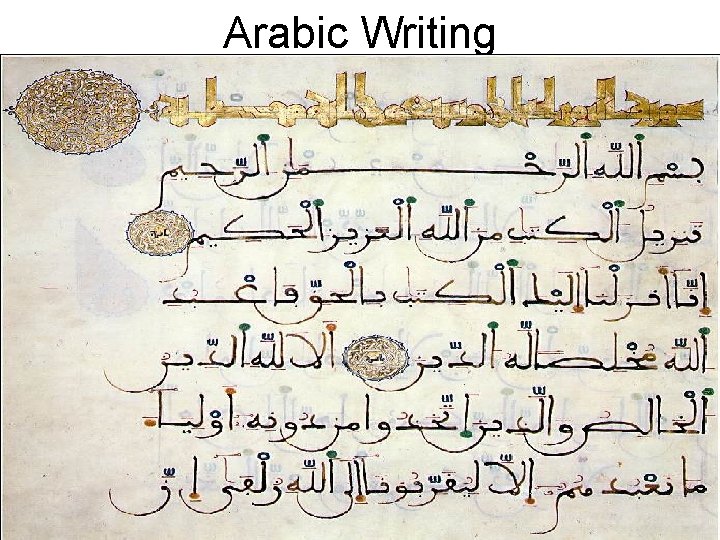 Arabic Writing
سورة الزمر
بِسْمِ اللَّهِ الرَّحْمَٰنِ الرَّحِيمِ
تَنزِيلُ الْكِتَٰبِ مِنَ اللَّهِ الْعَزِيزِ الْحَكِيمِ
إِنَّا أَنزَلْنَا إِلَيْكَ الْكِتَٰبَ بِالْحَقِّ فَاعْبُدِ
اللَّهَ مُخْلِصًا لَّهُ الدِّينَ أَلَا لِلَّهِ الدِّينُ
الْخَالِصُ وَالَّذِينَ اتَّخَذُوا مِن دُونِهِ أَوْلِيَا
مَا نَعْبُدُهُمْ إِلَّا لِيُقَرِّبُونَا إِلَى اللَّهِ زُلْفَىٰ إِنَّ